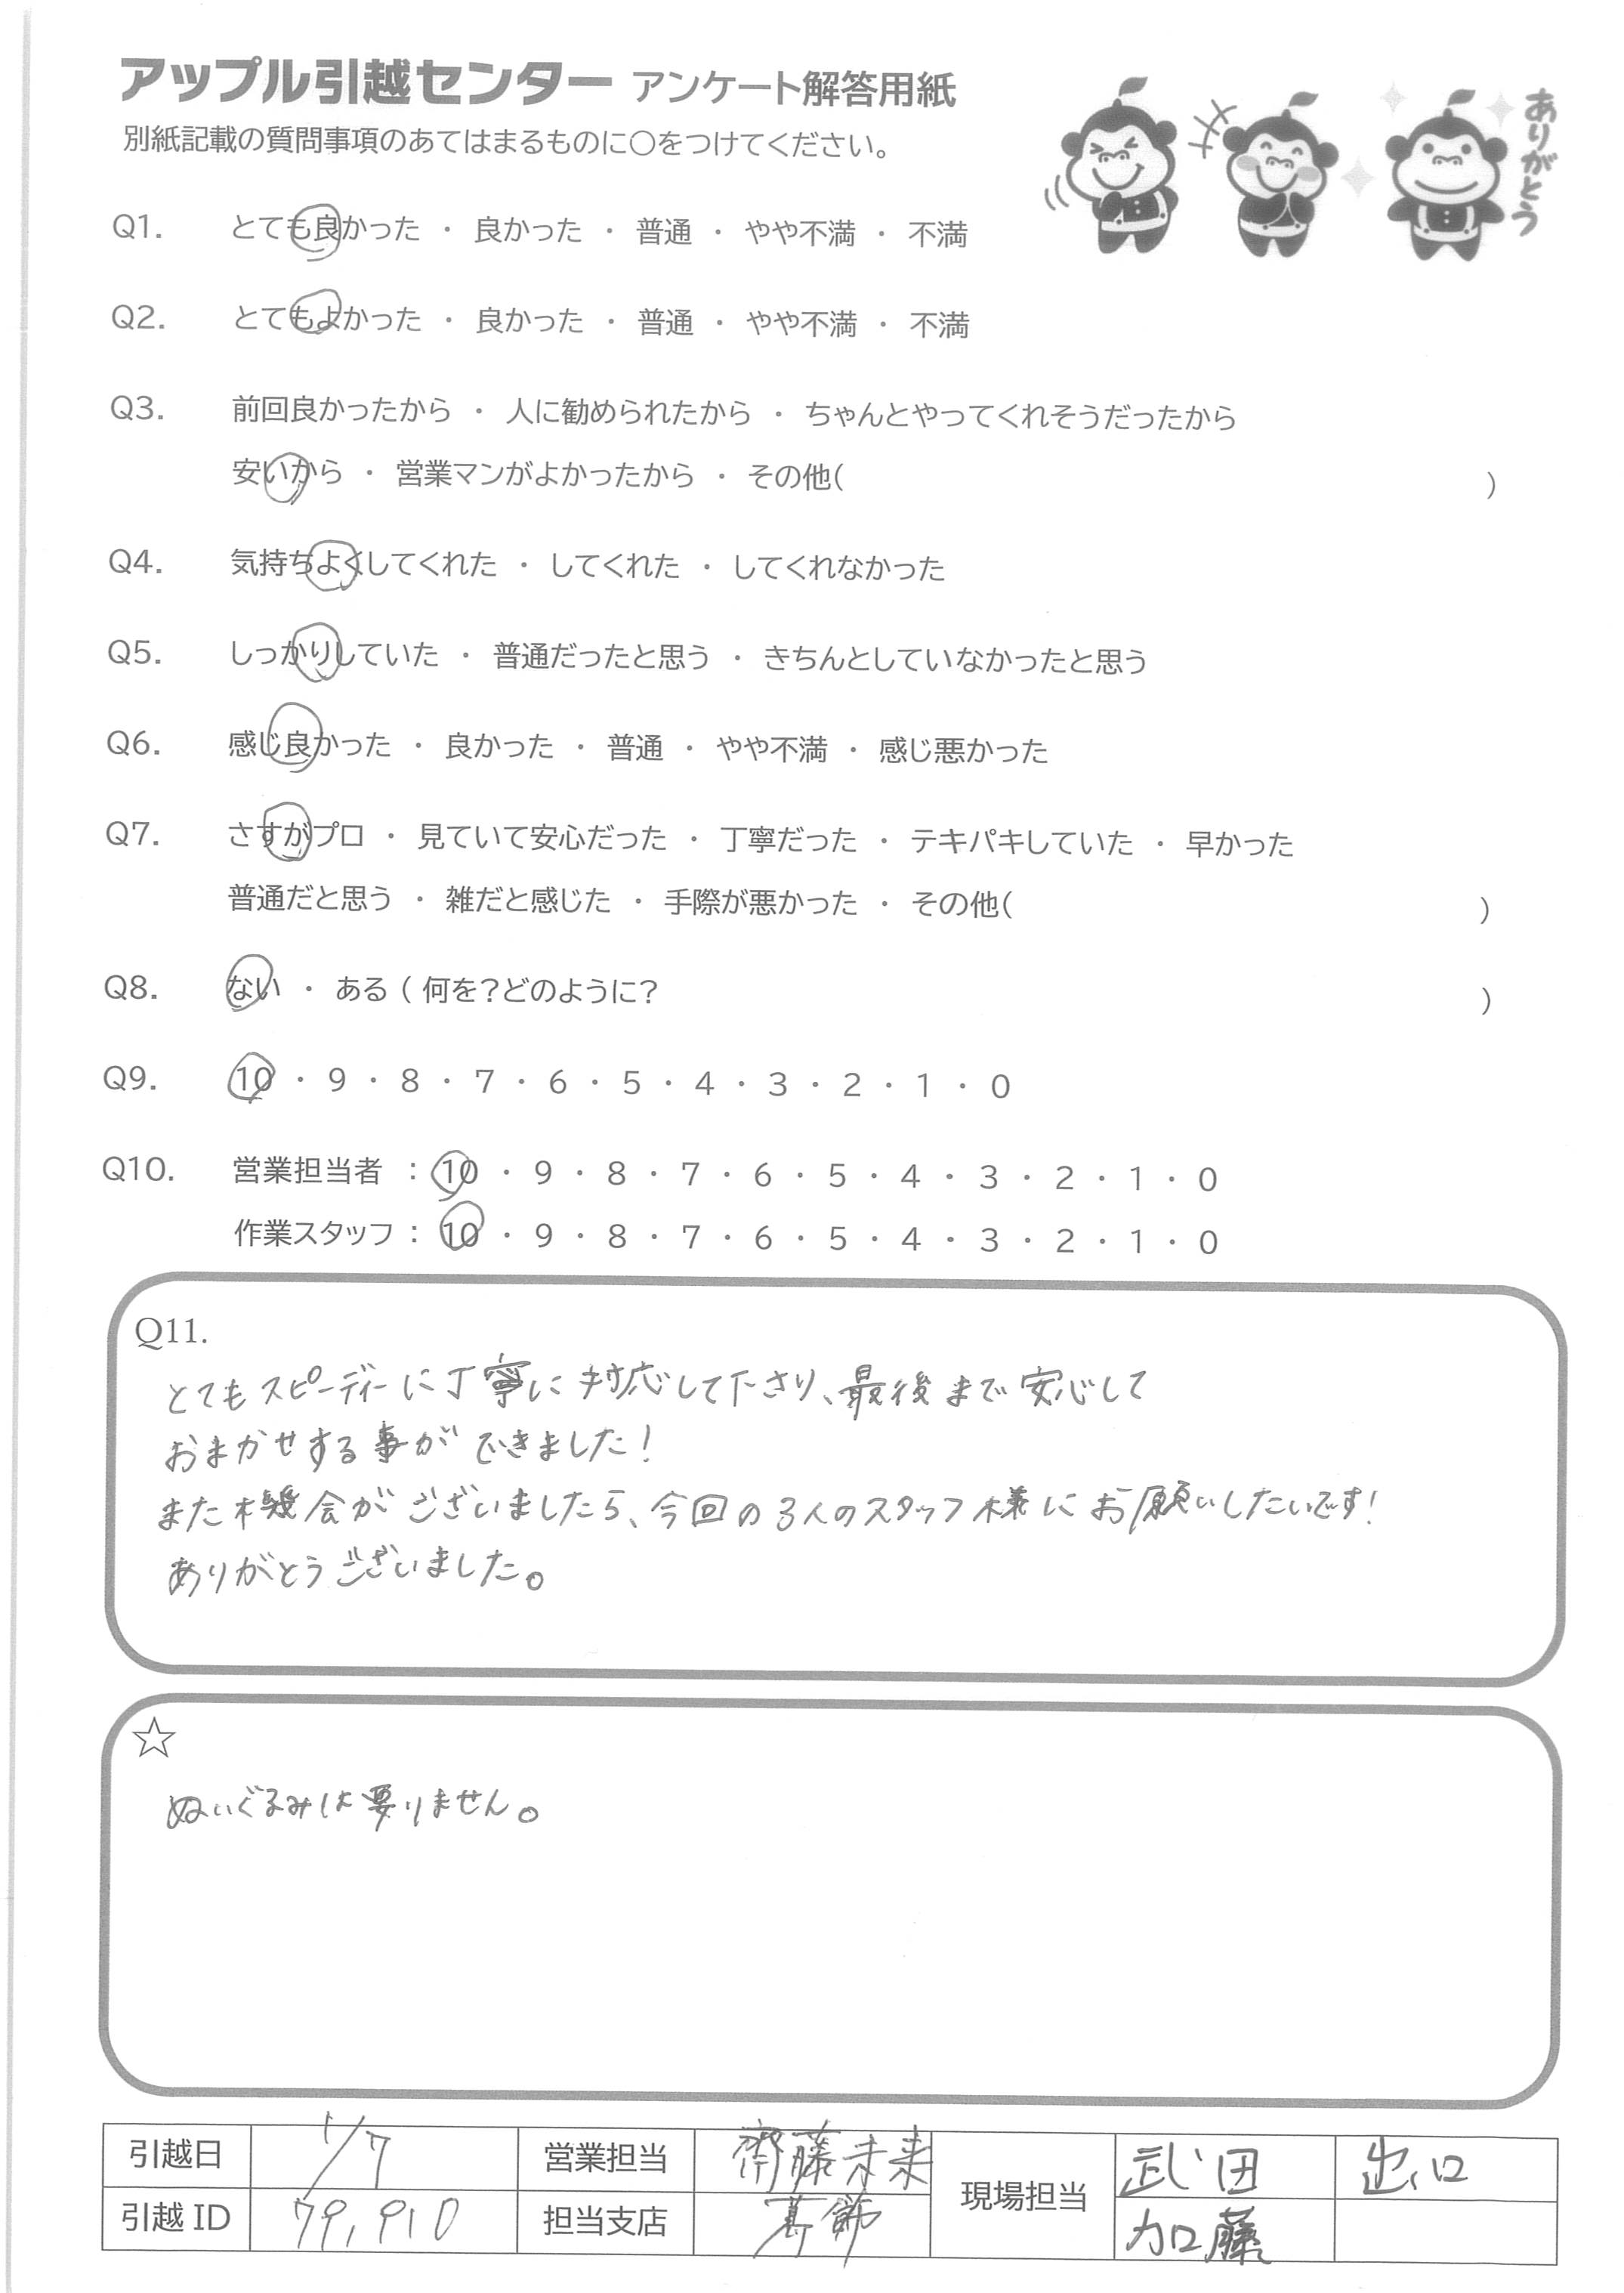 アップル引越センター アンケート解答用紙
別紙記載の質問事項のあてはまるものに○をつけてください。
ありがとう
Q1. とても良かった ・ 良かった ・ 普通 ・ やや不満 ・ 不満
Q2. とてもよかった ・ 良かった ・ 普通 ・ やや不満 ・ 不満
Q3. 前回良かったから ・ 人に勧められたから ・ ちゃんとやってくれそうだったから
安いから ・ 営業マンがよかったから ・ その他( )
Q4. 気持ちよくしてくれた ・ してくれた ・ してくれなかった
Q5. しっかりしていた ・ 普通だったと思う ・ きちんとしていなかったと思う
Q6. 感じ良かった ・ 良かった ・ 普通 ・ やや不満 ・ 感じ悪かった
Q7. さすがプロ ・ 見ていて安心だった ・ 丁寧だった ・ テキパキしていた ・ 早かった
普通だと思う ・ 雑だと感じた ・ 手際が悪かった ・ その他( )
Q8. ない ・ ある ( 何を?どのように? )
Q9. 10 ・ 9 ・ 8 ・ 7 ・ 6 ・ 5 ・ 4 ・ 3 ・ 2 ・ 1 ・ 0
Q10. 営業担当者 : 10 ・ 9 ・ 8 ・ 7 ・ 6 ・ 5 ・ 4 ・ 3 ・ 2 ・ 1 ・ 0
作業スタッフ : 10 ・ 9 ・ 8 ・ 7 ・ 6 ・ 5 ・ 4 ・ 3 ・ 2 ・ 1 ・ 0
Q11.
とてもスピーディーに丁寧に対応して下さり、最後まで安心して
おまかせする事ができました!
また機会がございましたら、今回の3人のスタッフ様にお願いしたいです!
ありがとうございました。
☆
ぬいぐるみは要りません。
引越日 1/7 営業担当 齊藤未来 現場担当 武田 出口
引越ID 79,910 担当支店 葛飾 加藤